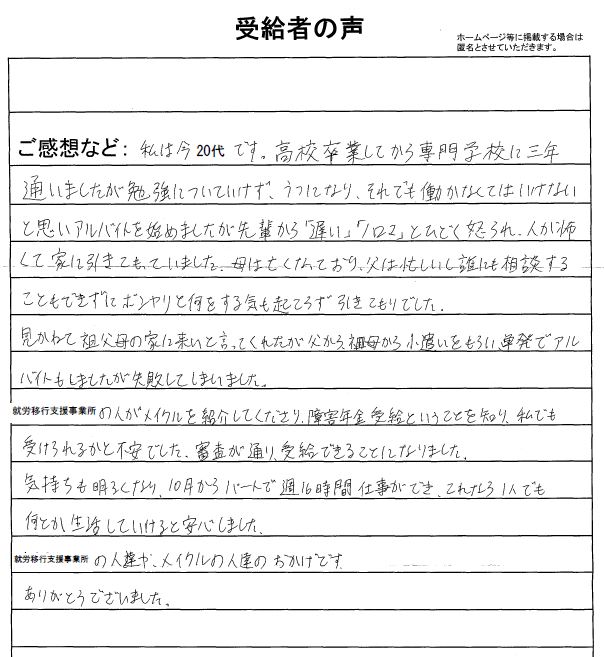 受給者の声
ホームページ等に掲載する場合は
匿名とさせていただきます。
ご感想など：私は今20代です。高校卒業してから専門学校に三年
通いましたが勉強についていけず、うつになり、それでも働かなくてはいけない
と思いアルバイトを始めましたが先輩から「遅い」「ノロマ」とひどく怒られ、人が怖
くて家に引きこもっていました。母は亡くなっており、父は忙しいし誰にも相談する
こともできずにボンヤリと何をする気も起こらず引きこもりでした。
見かねて祖父母の家に来いと言ってくれたが父から、祖母から小遣いをもらい単発でアル
バイトもしましたが失敗してしまいました。
就労移行支援事業所の人がメイクルを紹介してくださり、障害年金受給ということを知り、私でも
受けられるかと不安でした、審査が通り、受給できることになりました。
気持ちも明るくなり、10月からパートで週16時間仕事ができ、これなら1人でも
何とか生活していけると安心しました、
就労移行支援事業所の人達や、メイクルの人達のおかげです
ありがとうございました。